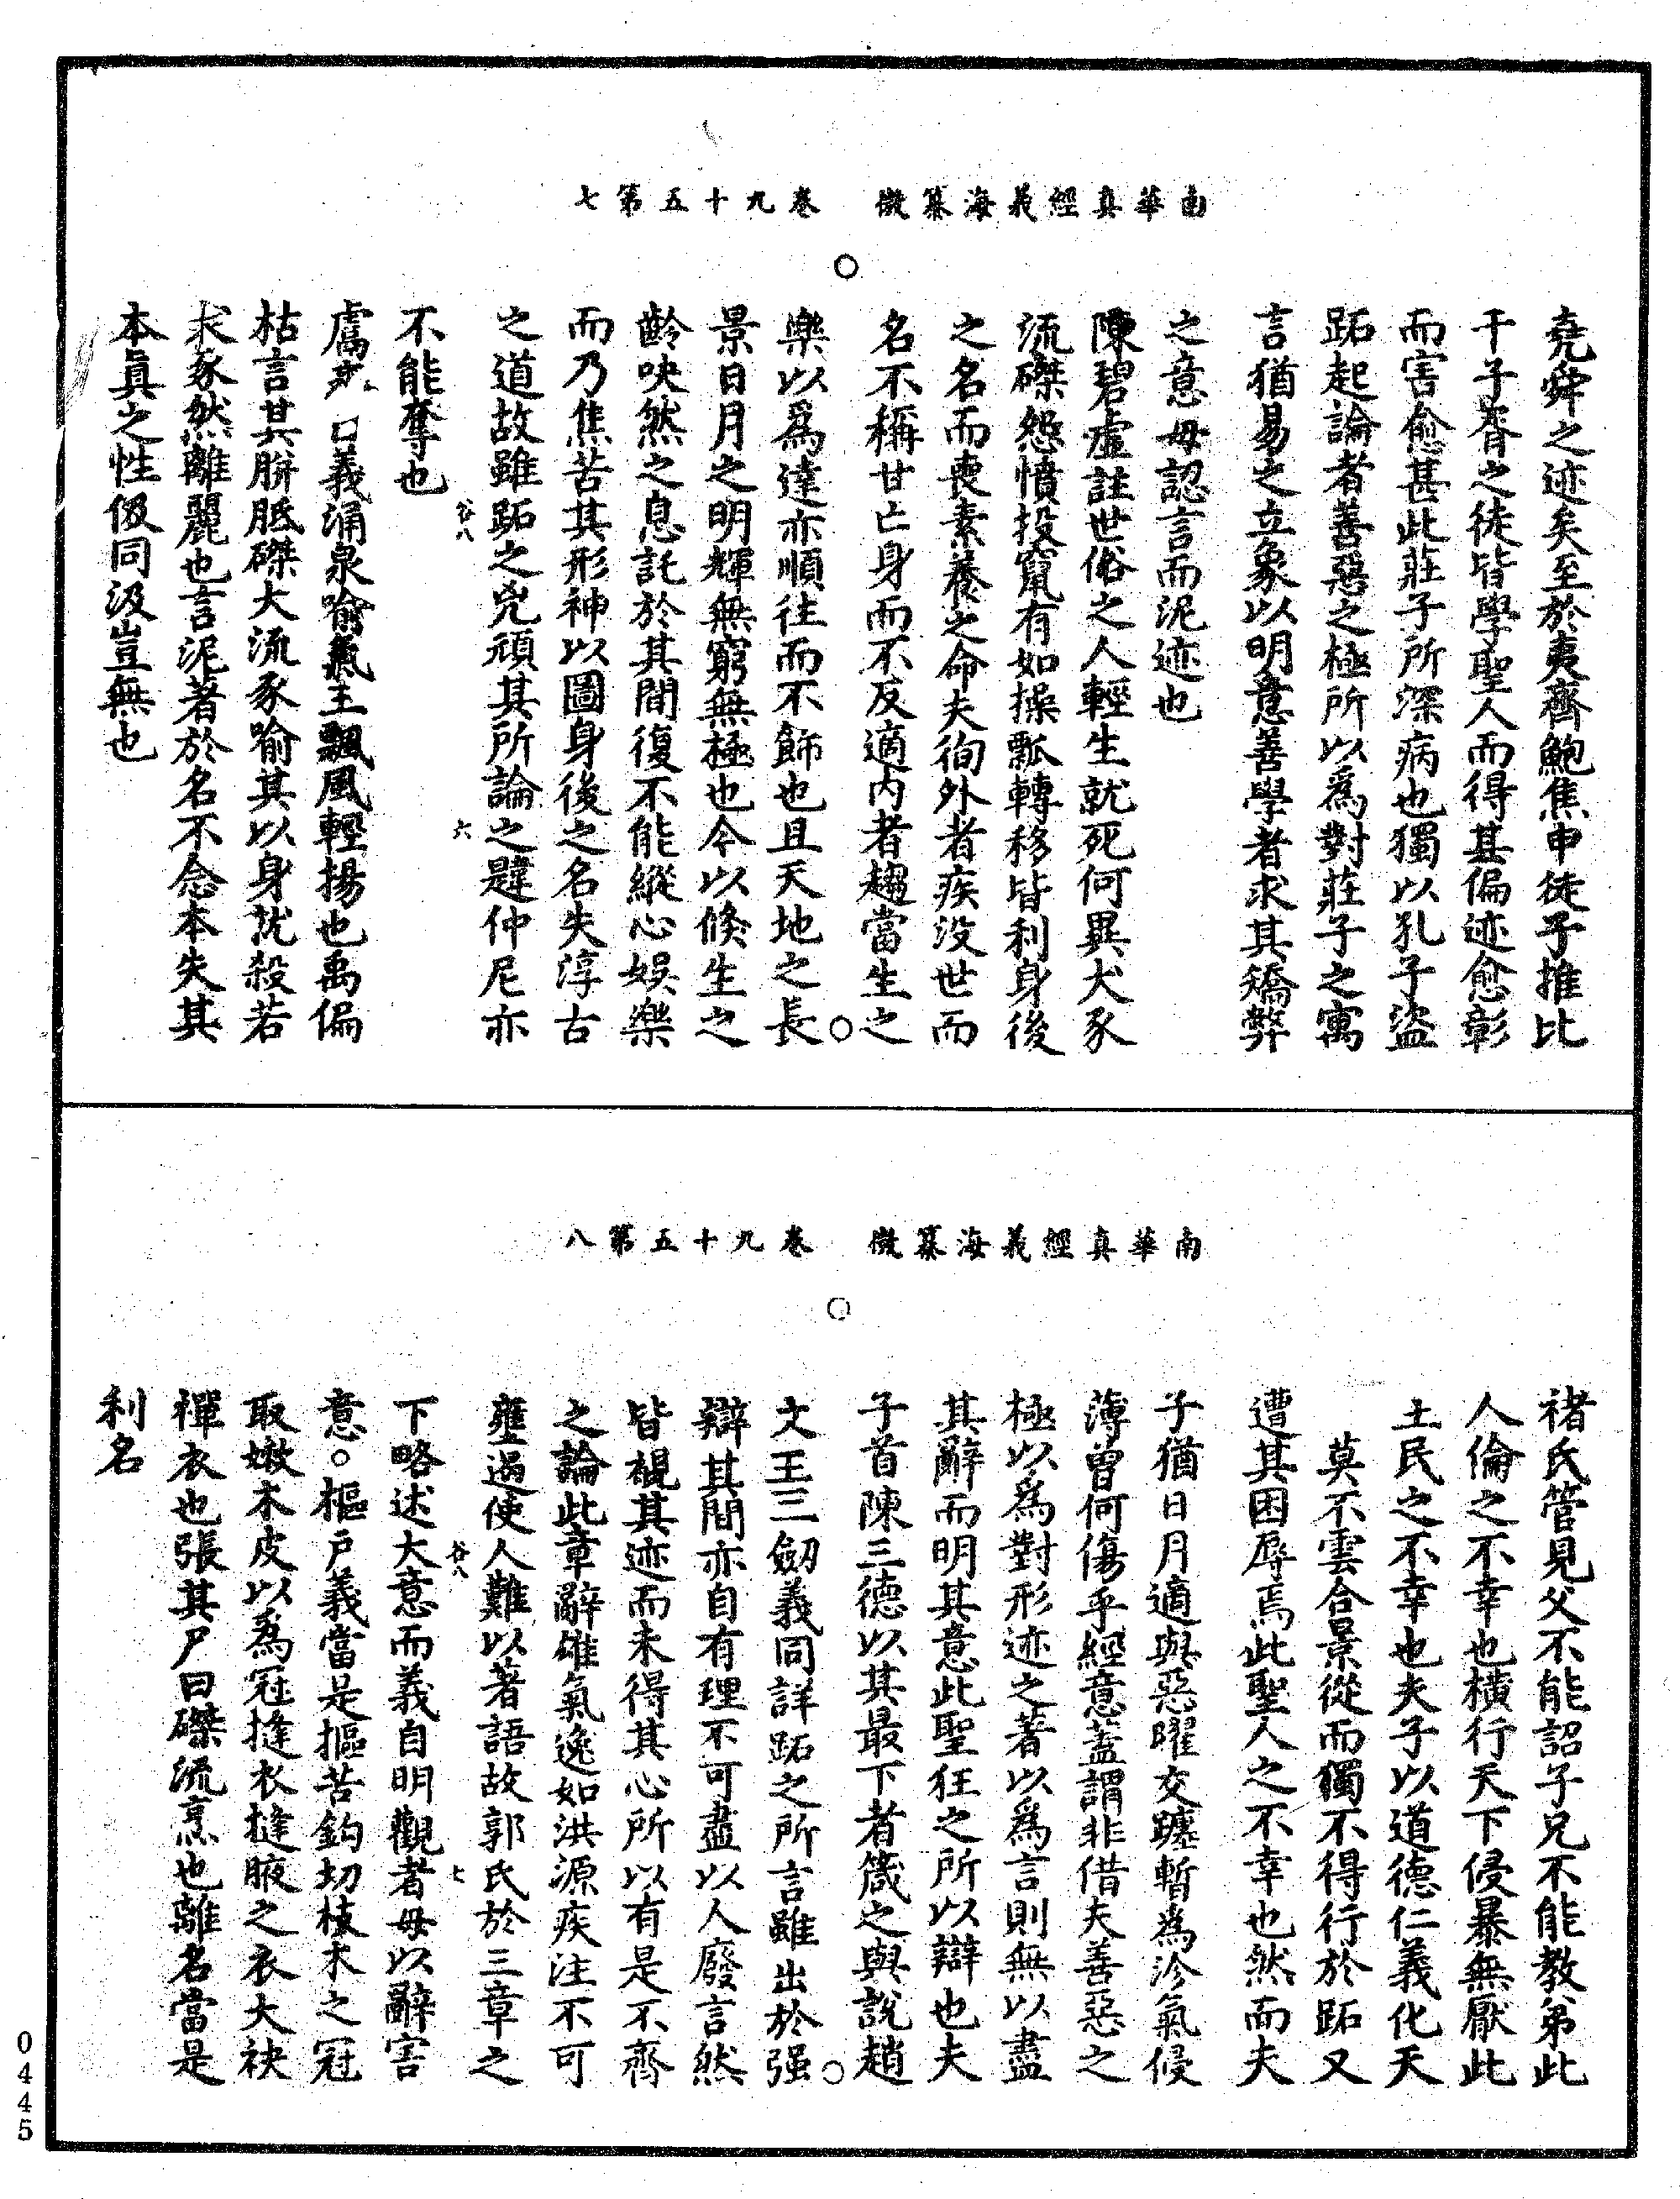 南華真經義海纂微　卷九十五第七
堯舜之迹矣至於夷齊鮑焦申徒子推比
干子胥之徒皆學聖人而得其偏迹愈彰
而害愈甚此莊子所深病也獨以孔子盜
跖起論者善惡之極所以爲對莊子之寓
言猶易之立象以明意善學者求其矯弊
之意毋認言而泥迹也
陳碧虛註世俗之人輕生就死何異犬豕
流磔怨憤投竄有如操瓢轉移皆利身後
之名而喪素養之命夫徇外者疾没世而
名不稱甘亡身而不反適内者趨當生之
樂以爲達亦順往而不飾也且天地之長
景日月之明輝無窮無極也今以倏生之
齡吷然之息託於其間復不能縱心娛樂
而乃焦苦其形神以圖身後之名失淳古
之道故雖跖之兇頑其所論之韙仲尼亦
不能奪也
谷八
六
鬳 口義涌泉喻氣王飄風輕揚也禹偏
枯言其胼胝磔大流豕喻其以身就殺若
求豕然離麗也言泥著於名不念本失其
本真之性伋同汲豈無也
南華真經義海纂微　卷九十五第八
褚氏管見父不能詔子兄不能教弟此
人倫之不幸也橫行天下侵暴無厭此
土民之不幸也夫子以道德仁義化天
莫不雲合景從而獨不得行於跖又
遭其困辱焉此聖人之不幸也然而夫
子猶日月適與惡曜交躔暫爲沴氣侵
薄曾何傷乎經意蓋謂非借夫善惡之
極以爲對形迹之著以爲言則無以盡
其辭而明其意此聖狂之所以辯也夫
子首陳三德以其最下者箴之與說趙
文王三劒義同詳跖之所言雖出於强
辯其間亦自有理不可盡以人廢言然
皆梘其迹而未得其心所以有是不齊
之論此章辭雄氣逸如洪源疾注不可
壅遏使人難以著語故郭氏於三章之
下略述大意而義自明觀者毋以辭害
谷八
七
意○樞戶義當是摳苦鈎切枝木之冠
取嫩木皮以爲冠摓衣摓腋之衣大袂
襌衣也張其尸曰磔流烹也離名當是
利名
0445